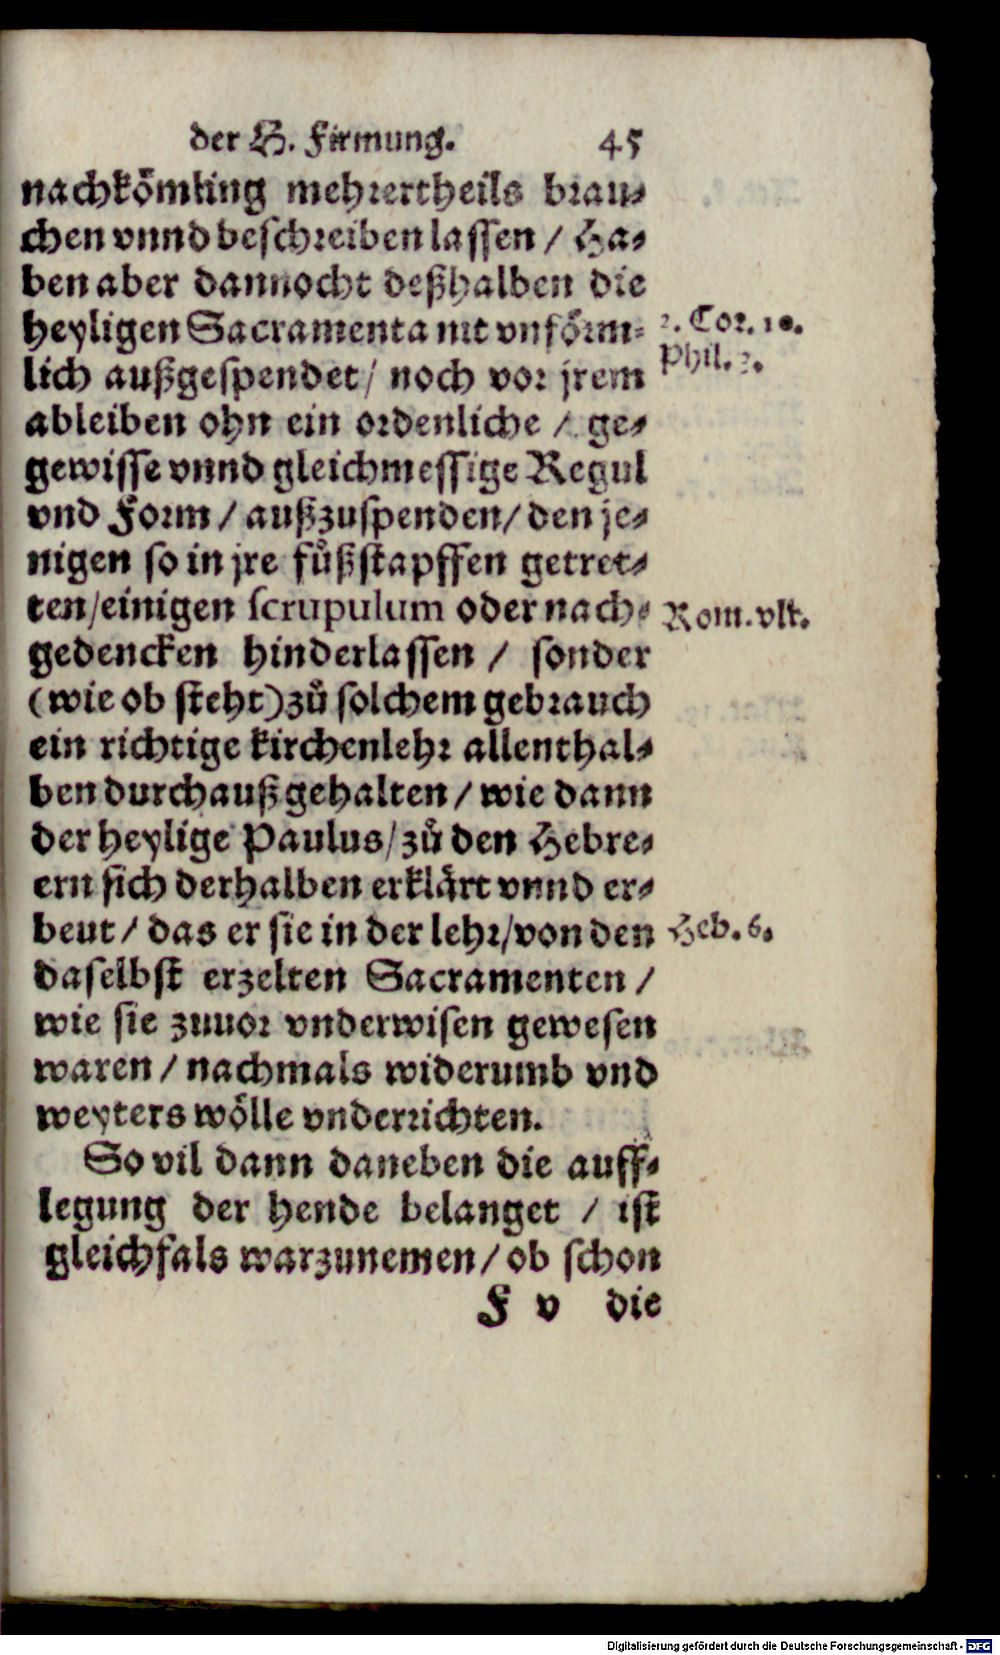 der H. Firmung. 45
nachkömling mehrertheils brau⸗
chen vnnd beschreiben lassen / Ha⸗
ben aber dannocht deßhalben die
heyligen Sacramenta nit vnförm⸗
lich außgespendet / noch vor jrem
ableiben ohn ein ordenliche / ge⸗
gewisse vnnd gleichmessige Regul
vnd Form / außzuspenden / den je⸗
nigen so in jre fůßstapffen getret⸗
ten / einigen scrupulum oder nach⸗
gedencken hinderlassen / sonder
(wie ob steht) zů solchem gebrauch
ein richtige kirchenlehr allenthal⸗
ben durchauß gehalten / wie dann
der heylige Paulus / zů den Hebre⸗
ern sich derhalben erklärt vnnd er⸗
beut / das er sie in der lehr / von den
daselbst erzelten Sacramenten /
wie sie zuuor vnderwisen gewesen
waren / nachmals widerumb vnd
weyters wölle vnderrichten.
So vil dann daneben die auff⸗
legung der hende belanget / ist
gleichfals warzunemen / ob schon
F v die
2. Cor. 10.
Phil. 3.
Rom. vlt.
Heb. 6.
Digitalisierung gefördert durch die Deutsche Forschungsgemeinschaft - DFG